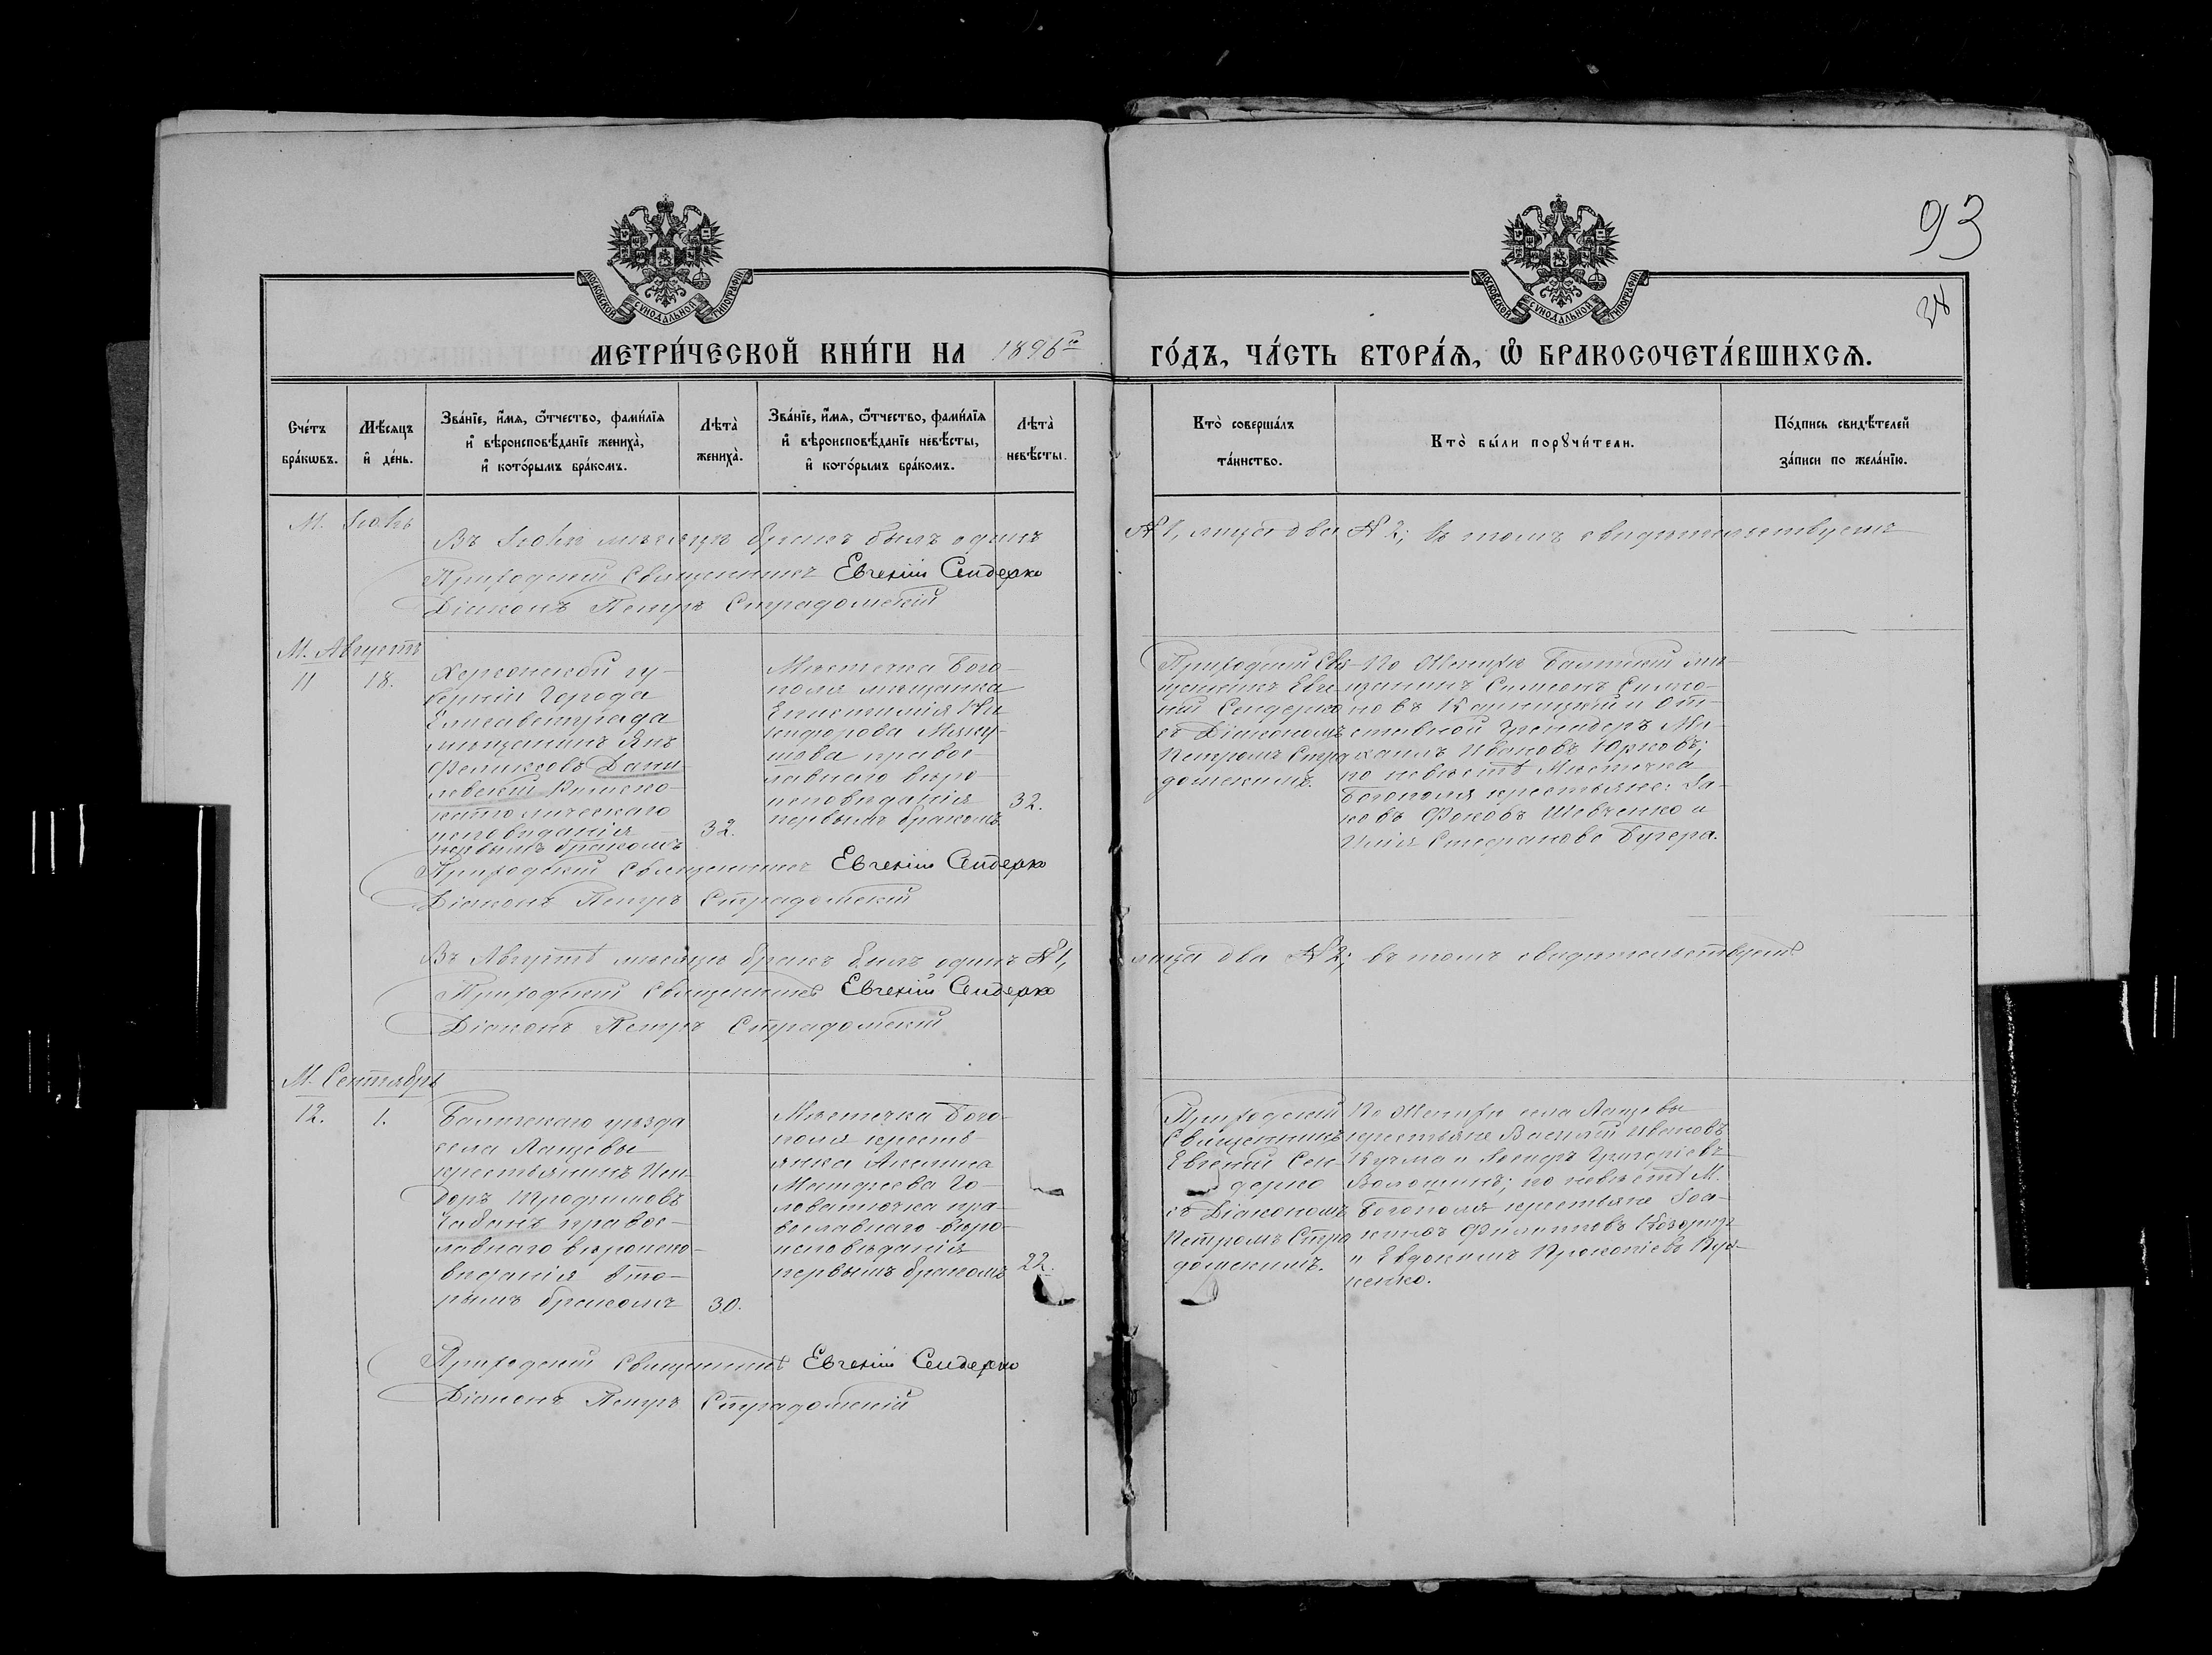 93
24
МОСКОВСКОЙ СУНОДАЛЬНОЙ ТИПОГРАФІИ
МОСКОВСКОЙ СУНОДАЛЬНОЙ ТИПОГРАФІИ
МЕТРИ́ЧЕСКОЙ КНИ́ГИ НА 1896й ГО́ДЪ, ЧА́СТЬ ВТОРА́Ѧ, Ѽ БРАКОСОЧЕТА́ВШИХСѦ.
Сче́тъ
бра́кѡвъ.
Мѣ́сяцъ
и҆ де́нь.
Зва́нїе, и҆́мя, ѻ҆́тчество, фами́лїя
и҆ вѣроисповѣ́данїе жениха̀,
и҆ кото́рымъ бра́комъ.
Лѣта̀
жениха̀.
Зва́нїе, и҆́мя, ѻ҆́тчество, фами́лїя
и҆ вѣроисповѣ́данїе невѣ́сты,
и҆ кото́рымъ бра́комъ.
Лѣта̀
невѣ́сты.
Кто̀ соверша́лъ
та́инство.
Кто̀ бы́ли порꙋчи́тели.
По́дпись свидѣ́телей
за́писи по жела́нїю.
М. Іюль
Въ Іюлѣ мѣсяцѣ бракъ былъ одинъ № 1, лица два № 2; въ томъ свидѣтельствуетъ
Приходскій Священникъ Евгеній Сендерко
Діаконъ Петръ Страдомскій
М. Августъ
11
18.
Херсонской гу-
берніи города
Елисаветграда
мѣщанинъ Янъ
Феликсовъ Дани-
левскій Римско-
католическаго
исповѣданія
первымъ бракомъ
32.
Мѣстечка Бого-
поля мѣщанка
Епистимія Ни-
кифорова
православ-
лавнаго вѣро-
исповѣданія
первымъ бракомъ
32.
Приходскій Свя-
щенникъ Евге-
ній Сендерко
съ Діакономъ
Петромъ Стра-
домскимъ.
По Женихѣ Балтскій мѣ-
щанинъ Симеонъ Симео-
новъ и От-
ставной Гренадеръ Ми-
хаилъ Ивановъ Юрковъ;
по невѣстѣ Мѣстечка
Богополя крестьяне: Іа-
ковъ Шевченко и
Илія Стефановъ Бугера.
Приходскій Священникъ Евгеній Сендерко
Діаконъ Петръ Страдомскій
Въ Августѣ мѣсяцѣ бракъ былъ одинъ № 1, лица два № 2; въ томъ свидѣтельствуетъ
Приходскій Священникъ Евгеній Сендерко
Діаконъ Петръ Страдомскій
М. Сентябрь
12.
1.
Балтскаго уѣзда
села Лащевы
крестьянинъ Иси-
доръ Трофимовъ
Чабанъ правос-
лавнаго вѣроиспо-
вѣданія вто-
рымъ бракомъ
30.
Мѣстечка Бого-
поля кресть-
янка Акилина
Матфеева Го-
ловатючка пра-
вославнаго вѣро-
исповѣданія
первымъ бракомъ
22.
Приходскій
Священникъ
Евгеній Сен-
дерко
съ Діакономъ
Петромъ Стра-
домскимъ.
По Женихѣ села Лащевы
крестьяне Василій Ивановъ
Кучма и Іосифъ Григоріевъ
Волошинъ; по невѣстѣ М.
Богополя крестьяне Іоа-
кимъ Филипповъ
и Евдокимъ Прокопіевъ
Приходскій Священникъ Евгеній Сендерко
Діаконъ Петръ Страдомскій